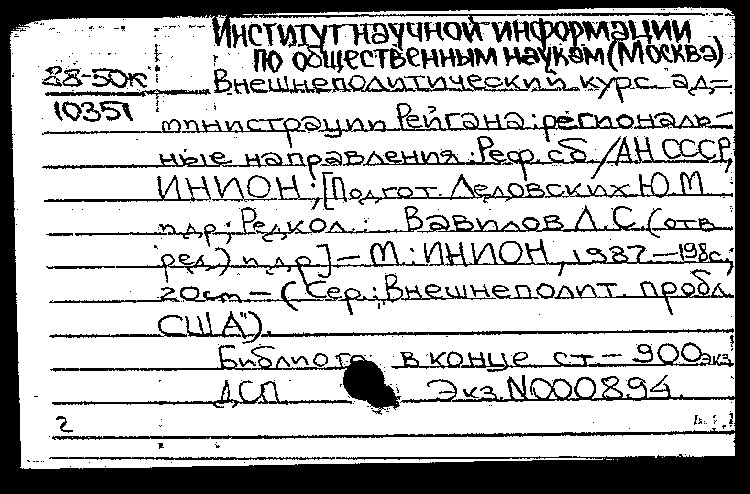 Институт научной информации
по общественным наукам (Москва)
88-50к Внешнеполитический курс ад=
10351 министрации Рейгана: региональ-
ные направления: Реф. сб. / АН СССР,
ИНИОН; [Подгот. Ледовских Ю.М
и др; Редкол.: Вавилов Л.С. (отв
ред.) и др] — М.: ИНИОН, 1987 — 198с;
20см — (Сер.; Внешнеполит. пробл
США").
Библиогр в конце ст — 900экз
ДСП Экз. N000894.
2